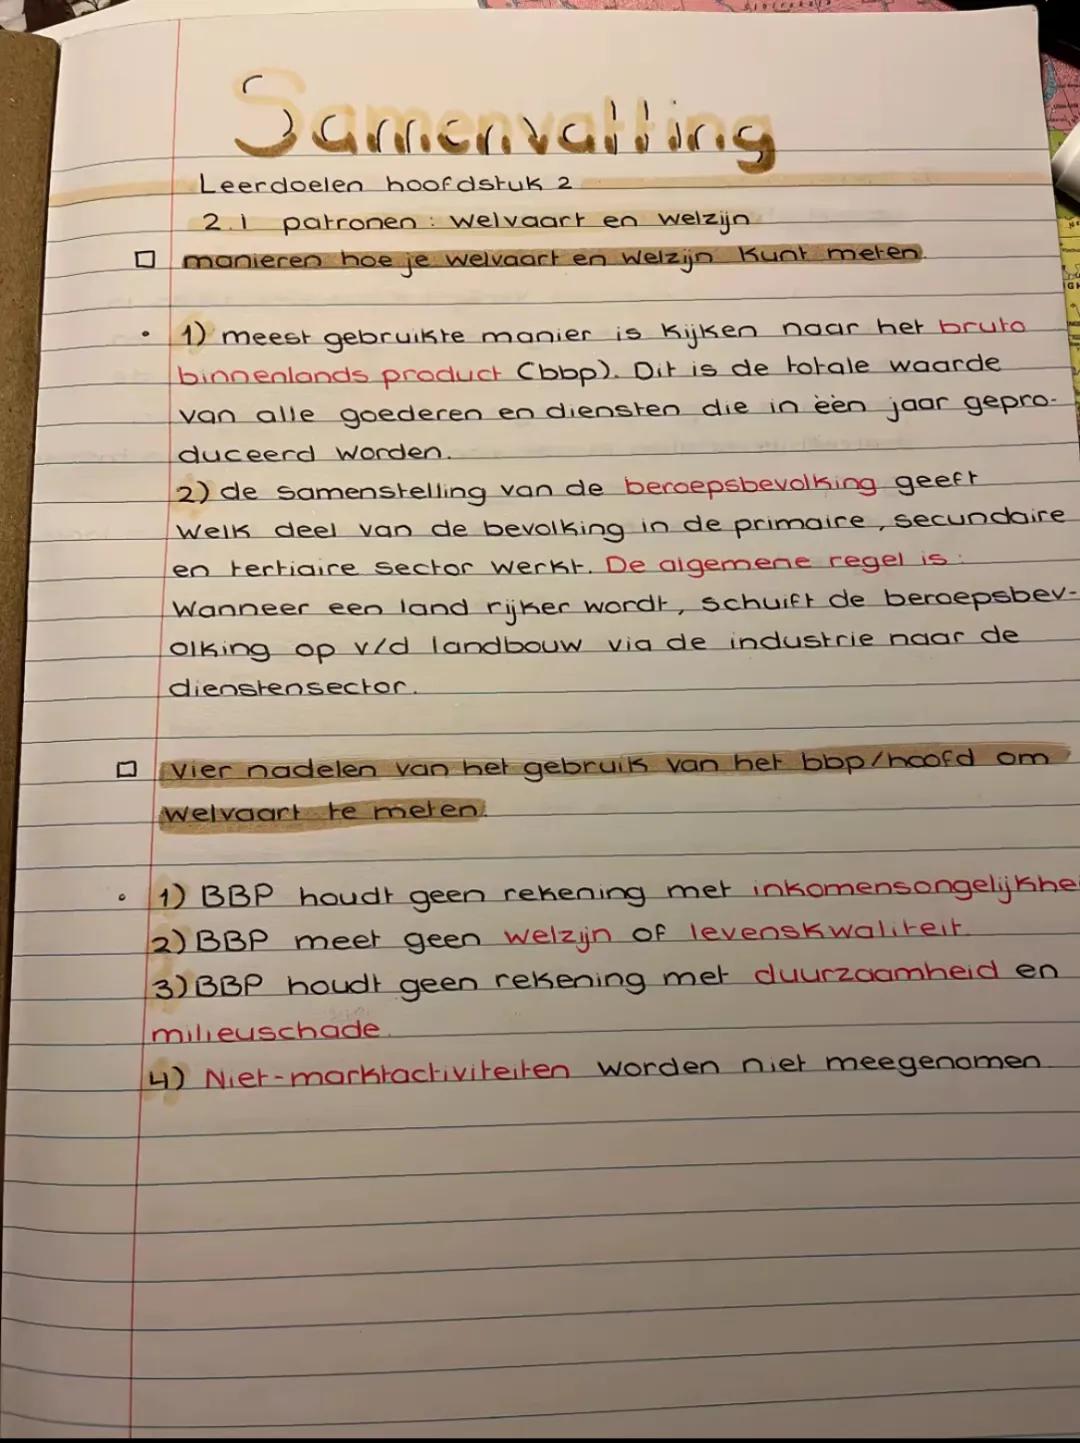 Samenvatting
Leerdoelen hoofdstuk 2
2.1 patronen : welvaart en welzijn
manieren hoe je welvaart en welzijn kunt meten.
1) meest gebruikte manier is kijken naar het bruto
binnenlands product (bbp). Dit is de totale waarde
van alle goederen en diensten die in één jaar gepro-
duceerd worden.
2) de samenstelling van de beroepsbevolking geeft
welk deel van de bevolking in de primaire, secundaire
en tertiaire sector werkt. De algemene regel is :
Wanneer een land rijker wordt, schuift de beroepsbev-
olking op v/d landbouw via de industrie naar de
dienstensector.
Vier nadelen van het gebruik van het bbp/hoofd om
welvaart te meten.
1) BBP houdt geen rekening met inkomensongelijkhe
2) BBP meet geen welzijn of levenskwaliteit.
3) BBP houdt geen rekening met duurzaamheid en
milieuschade.
4) Niet-marktactiviteiten worden niet meegenomen.